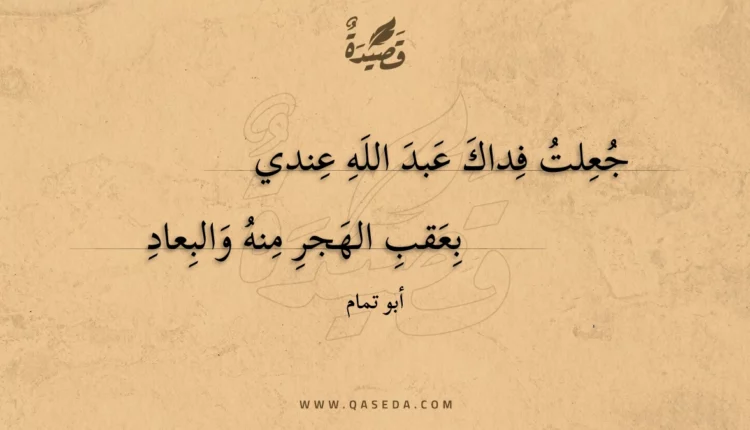 قَصِيْدَةٌ
جُعِلتُ فِداكَ عَبدَ اللَهِ عِندي
بِعَقبِ الهَجرِ مِنهُ وَالبِعادِ
أبو تمام
WWW.QASEDA.COM